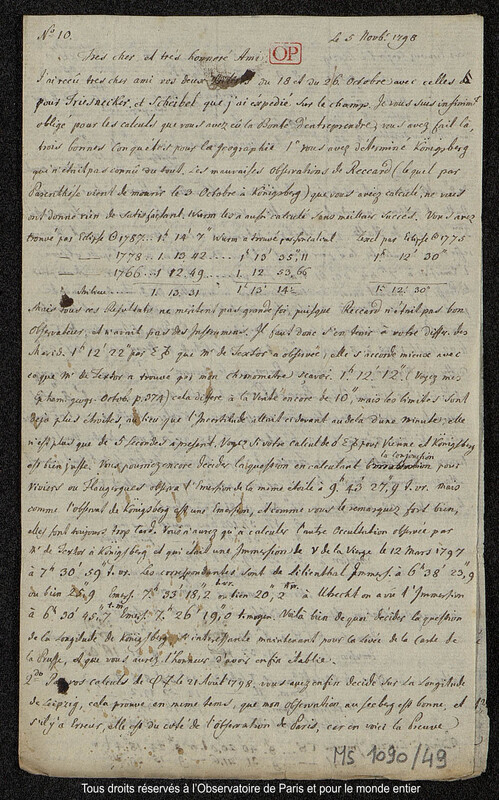 N° 10.
Le 5 Novb. 1798
OP
Tres cher et très honoré Ami
J'ai reçu tres cher ami vos deux du 18 et du 26 Octobre avec celles
pour Triesnecker, et Scheibel que j'ai expedié sur le champ. Je vous suis infiniment
obligé pour les calculs que vous avez eû la Bonté d'entreprendre, vous avez fait là,
trois bonnes Conquêtes pour la geographie 1° vous avez determiné Königsberg
qui n'étoit pas connû du tout. Les mauvaises Observations de Reccard (lequel par
Parenthese vient de mourir le 3 Octobre à Königsberg) que vous aviez calculé, ne vous
ont donné rien de satisfaisant. Wurm les a aussi calculé sans meilleur succès. Vous avez
trouvé par Eclipse ☉ 1787... 1h 14' 7" Wurm a trouvé par
par Eclipse ☉ 1775
1778 .. 1. 13. 42 ... 1h 13' 35",11
1h 12' 30"
1766 .. 1. 12. 49 ... 1. 12 53,66
Milieu .. 1. 13. 31
1h 13' 14"
1h 12' 30"
Mais tous ces Resultats ne meritent pas grande foi, puisque Reccard n'étoit pas bon
Observateur, et n'avoit pas des Instrumens. Il faut donc s'en tenir à votre differ. des
Merid. 1h 12' 22" par que Mr de Textor a observée, elle s'accorde mieux avec
ce que Mr de Textor a trouvé par mon chronometre scavoir 1h 12' 12" (Voyez mes
Octob. p. 374) cela differe à la Verité encore de 10", mais les limites sont
deja plus étroites, au lieu que l'Incertitude alloit ci devant au dela d'une minute, elle
n'est plus que de 5 secondes à present. Voyez si votre calcul de pour Vienne et Königsberg
est bien juste. Vous pourriez encore decider la question en calculant la conjonction pour
Viviers ou Flaugergues observa l'Emersion de la même étoile à 9h 43' 27,9 t. vr. mais
comme l'observat. de Königsberg est une Emersion, et comme vous le remarquez fort bien,
elles sont toujours trop tard. Vous n'aurez qu'à calculer l'autre Occultation observée par
Mr de Textor à Königsberg et qui étoit une Immersion de γ de la Vierge le 12 Mars 1797
à 7h 30' 59" t. vr. Les correspondantes sont de Lilienthal Immers. à 6h 38' 23",9
ou bien 25",9 Emers. 7h 33' 18,2 ou bien 20,2 à Utrecht on a vû l'Immersion
à 6h 30' 45,7 Emers. 7h 26' 19,0 t. moyen. Voilà bien de quoi decider la question
de la Longitude de Königsberg si interessante maintenant pour la Levée de la Carte de
la Prusse, et que vous aurez l'honneur d'avoir enfin établie.
2do Par vos calculs de le 21 Avril 1798, vous avez enfin decidé sur la Longitude
de Leipzig, cela prouve en même tems, que mon observation au Seeberg est bonne, et
s'il y a Erreur, elle est du coté de l'observation de Paris, car en voici la Preuve
Ms 1090/49
Tous droits réservés à l'Observatoire de Paris et pour le monde entier